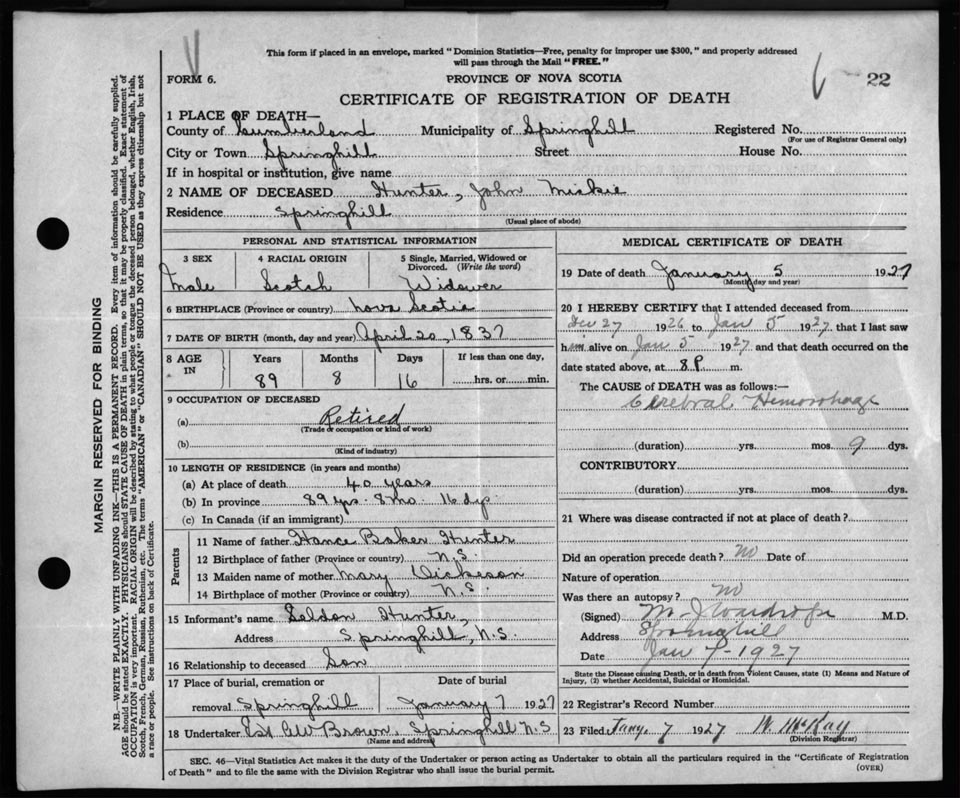 This form if placed in an envelope, marked "Dominion Statistics—Free, penalty for improper use $300," and properly addressed
will pass through the Mail "FREE."
FORM 6.
PROVINCE OF NOVA SCOTIA
22
CERTIFICATE OF REGISTRATION OF DEATH
1 PLACE OF DEATH—
County of Cumberland Municipality of Springhill Registered No.
(For use of Registrar General only)
City or Town Springhill Street House No.
If in hospital or institution, give name
2 NAME OF DECEASED Hunter, John Mickie
Residence Springhill
(Usual place of abode)
PERSONAL AND STATISTICAL INFORMATION
3 SEX 4 RACIAL ORIGIN 5 Single, Married, Widowed or
Divorced. (Write the word)
Male Scotch Widower
6 BIRTHPLACE (Province or country) Nova Scotia
7 DATE OF BIRTH (month, day and year) April 20, 1837
8 AGE IN Years Months Days If less than one day,
89 8 16 hrs. or min.
9 OCCUPATION OF DECEASED
(a) Retired
(Trade or occupation or kind of work)
(b)
(Kind of industry)
10 LENGTH OF RESIDENCE (in years and months)
(a) At place of death 40 years
(b) In province 89 yrs. 8 mo. 16 dys
(c) In Canada (if an immigrant)
Parents
11 Name of father Hance Baker Hunter
12 Birthplace of father (Province or country) N.S.
13 Maiden name of mother Mary Dickeson
14 Birthplace of mother (Province or country) N.S.
15 Informant's name Seldon Hunter,
Address Springhill, N.S.
16 Relationship to deceased Son
17 Place of burial, cremation or Date of burial
removal Springhill January 7 1927
18 Undertaker Est. AW Brown, Springhill N.S
(Name and address)
MEDICAL CERTIFICATE OF DEATH
19 Date of death January 5 1927
(Month, day and year)
20 I HEREBY CERTIFY that I attended deceased from
Dec 27 1926 to Jan 5 1927 that I last saw
him alive on Jan 5 1927 and that death occurred on the
date stated above, at 8 P. m.
The CAUSE OF DEATH was as follows:—
Cerebral Hemorrhage
(duration) yrs. mos. 9 dys.
CONTRIBUTORY
(duration) yrs. mos. dys.
21 Where was disease contracted if not at place of death?
Did an operation precede death? No Date of
Nature of operation
Was there an autopsy? No
(Signed) M. J Wardrope M.D.
Address Springhill
Date Jan 7-1927
State the Disease causing Death, or in death from Violent Causes, state (1) Means and Nature of
Injury, (2) whether Accidental, Suicidal or Homicidal.
22 Registrar's Record Number
23 Filed Jany. 7 1927 W. McKay
(Division Registrar)
SEC. 46—Vital Statistics Act makes it the duty of the Undertaker or person acting as Undertaker to obtain all the particulars required in the "Certificate of Registration
of Death" and to file the same with the Division Registrar who shall issue the burial permit.
(OVER)
MARGIN RESERVED FOR BINDING
N.B.—WRITE PLAINLY WITH UNFADING INK—THIS IS A PERMANENT RECORD. Every item of information should be carefully supplied.
AGE should be stated EXACTLY. PHYSICIANS should STATE CAUSE OF DEATH in plain terms, so that it may be properly classified. Exact statement of
OCCUPATION is very important. RACIAL ORIGIN will be described by stating to what people or tongue the deceased person belonged, whether English, Irish,
Scotch, French, German, Russian, Ruthenian, etc. The terms "AMERICAN" or "CANADIAN" SHOULD NOT BE USED as they express citizenship but not
a race or people. See instructions on back of Certificate.